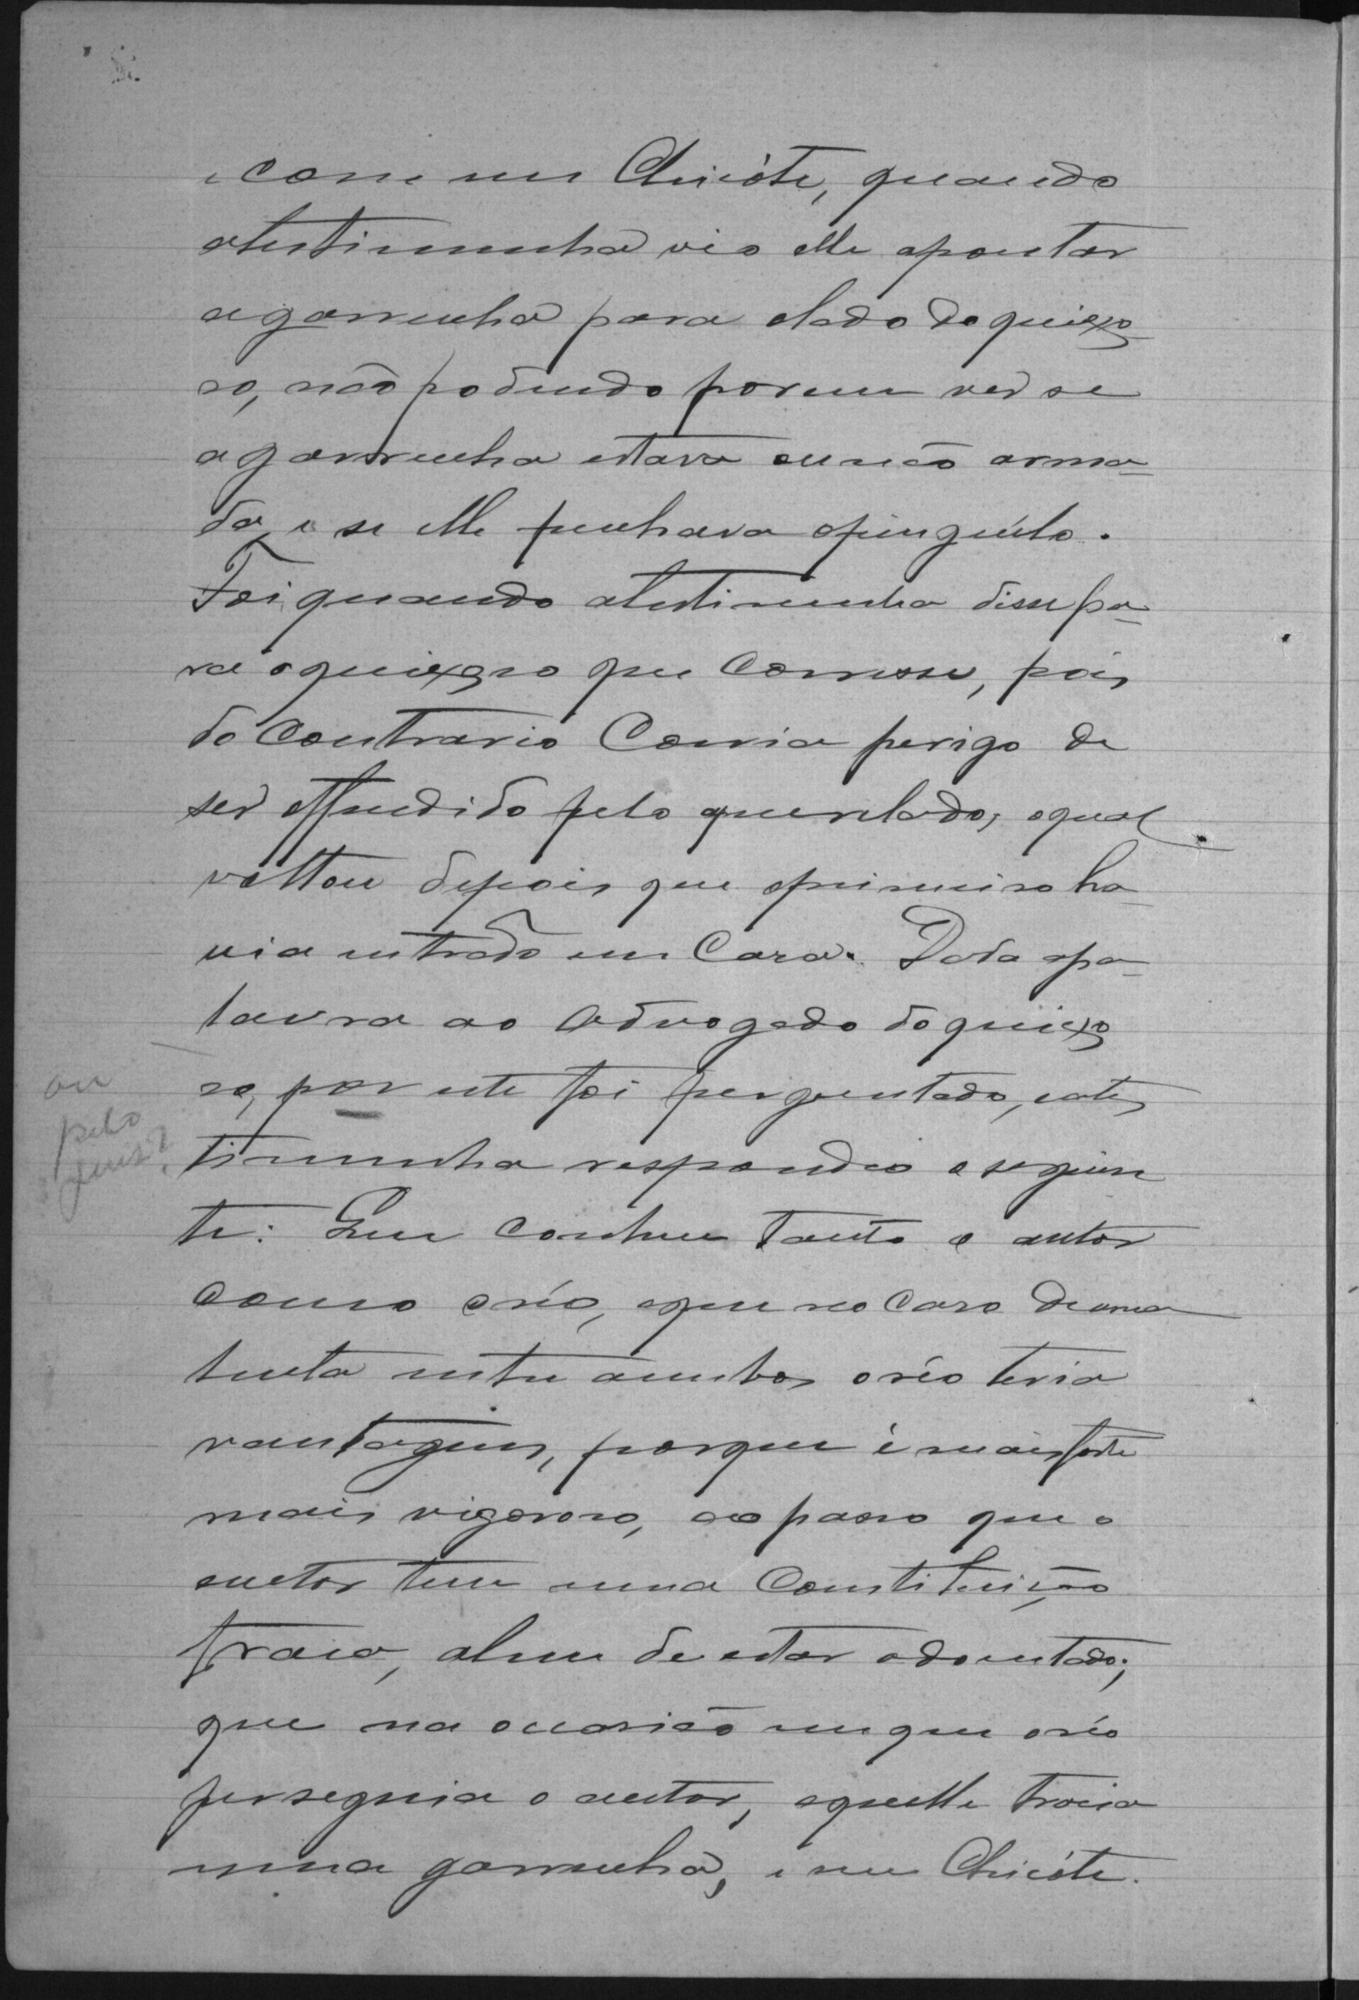 e com um Chicóte, quando
atestimunha vio elle apontar
agarrucha para olado do queixo
so, não podendo porem ver se
agarrucha estava ou não arma-
da, e se elle puchava opinguélo.
Foi quando atestimunha disse pa-
ra o queixoso que Corresse, pois
do Contrario Corria perigo de
ser offendido pelo querelado, oqual
voltou depois que oprimeiro ha-
via entrado em Casa. Dada apa-
lavra ao Advogado do queixo
so, por este foi perguntado, eates
timunha respondeo o seguin
te: Que Conhece tanto o autor
como o réo, eque no caso de uma
lucta entre ambos o réo teria
vantagens, porque é mais forte
mais vigoroso, ao passo que o
auctor tem uma Constituição
fraca, alem de estar adoentado;
que na occasião em que o réo
perseguia o autor, aquelle trasia
uma garrucha, e um Chicóte.
ou
pelo
juis?